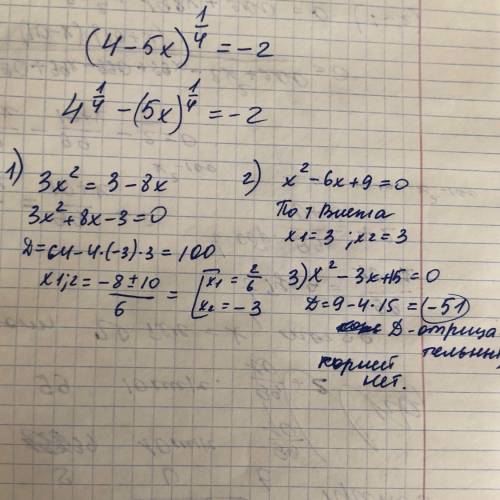 (4-5x)^{1/4} = -2
4^{1/4} - (5x)^{1/4} = -2
1) 3x² = 3-8x
3x²+8x-3=0
D=64-4·(-3)·3=100
x1;2 = (-8±10)/6 = [x1 = 2/6
x2 = -3
2) x²-6x+9=0
По т Виета
x1=3 ; x2=3
3) x²-3x+15=0
D=9-4·15=(-51)
D-отрица
тельный
корней
нет.